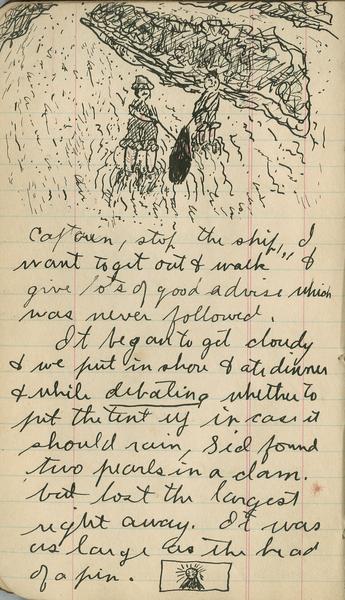 Captain, stop the ship, I
want to get out & walk" &
give lots of good advise which
was never followed.
It began to get cloudy
& we put in shore & ate dinner
& while debating whether to
put the tent up in case it
should rain, Sid found
two pearls in a clam.
but lost the largest
right away. It was
as large as the head
of a pin.